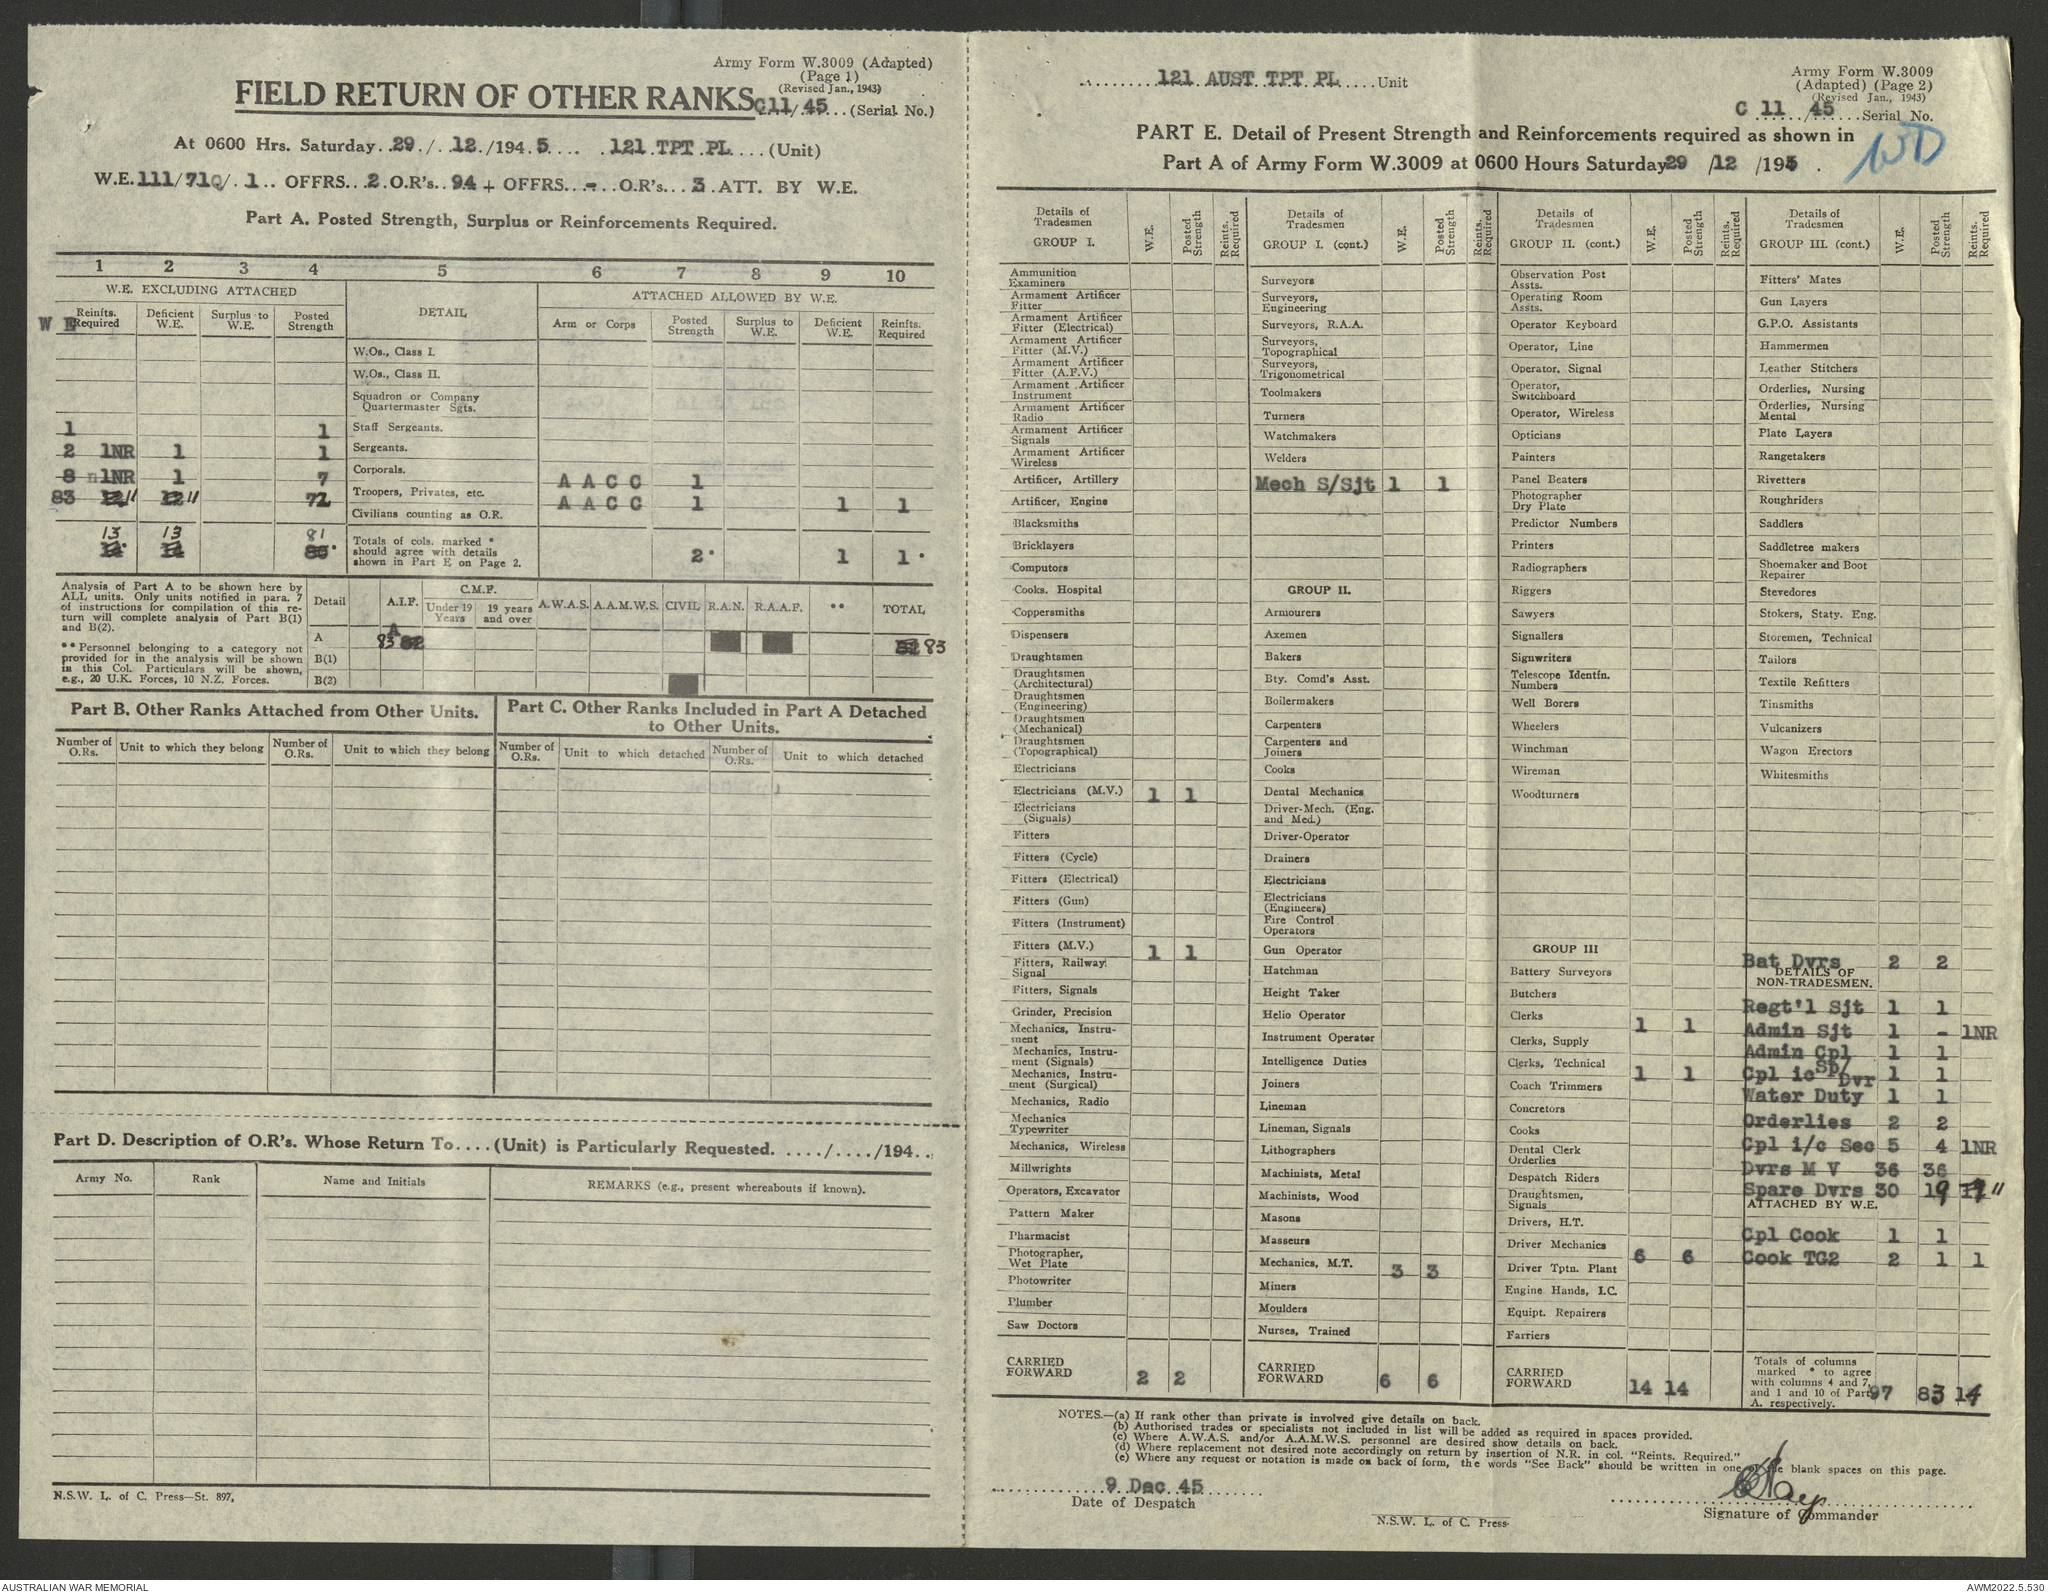 Army Form W.3009 (Adapted)
(Page 1)
(Revised Jan., 1943)
FIELD RETURN OF OTHER RANKS C11/45 (Serial No.)
At 0600 Hrs. Saturday 29 / 12 /1945 121 TPT PL (Unit)
W.E. 111/71Q/ 1 OFFRS 2 O.R's 94 + OFFRS - O.R's 3 ATT. BY W.E.
Part A. Posted Strength, Surplus or Reinforcements Required.
1 2 3 4 5 6 7 8 9 10
W.E. EXCLUDING ATTACHED DETAIL ATTACHED ALLOWED BY W.E.
W E Reinfts. Required Deficient W.E. Surplus to W.E. Posted Strength Arm or Corps Posted Strength Surplus to W.E. Deficient W.E. Reinfts. Required
W.Os., Class I.
W.Os., Class II.
Squadron or Company Quartermaster Sgts.
1 1 Staff Sergeants.
2 1NR 1 1 Sergeants.
8 1NR 1 7 Corporals. A A C C 1
83 12 11 12 11 72 Troopers, Privates, etc. A A C C 1 1 1
Civilians counting as O.R.
13 13 81
14 14 Totals of cols. marked * should agree with details shown in Part E on Page 2. 2 1 1
Analysis of Part A to be shown here by ALL units. Only units notified in para. 7 of instructions for compilation of this return will complete analysis of Part B(1) and B(2).
** Personnel belonging to a category not provided for in the analysis will be shown in this Col. Particulars will be shown, e.g., 20 U.K. Forces, 10 N.Z. Forces.
Detail A.I.F. C.M.F. Under 19 Years 19 years and over A.W.A.S. A.A.M.W.S. CIVIL R.A.N. R.A.A.F. ** TOTAL
A 83 82 82 83
B(1)
B(2)
Part B. Other Ranks Attached from Other Units.
Number of O.Rs. Unit to which they belong Number of O.Rs. Unit to which they belong
Part C. Other Ranks Included in Part A Detached to Other Units.
Number of O.Rs. Unit to which detached Number of O.Rs. Unit to which detached
Part D. Description of O.R's. Whose Return To....(Unit) is Particularly Requested. ...../..../194..
Army No. Rank Name and Initials REMARKS (e.g., present whereabouts if known).
N.S.W. L. of C. Press—St. 897,
121 AUST TPT PL Unit
Army Form W.3009
(Adapted) (Page 2)
(Revised Jan., 1943)
C 11 / 45 Serial No.
PART E. Detail of Present Strength and Reinforcements required as shown in
Part A of Army Form W.3009 at 0600 Hours Saturday 29 /12 /1945 .
Details of Tradesmen GROUP I. W.E. Posted Strength Reints. Required
Ammunition Examiners
Armament Artificer Fitter
Armament Artificer Fitter (Electrical)
Armament Artificer Fitter (M.V.)
Armament Artificer Fitter (A.F.V.)
Armament Artificer Instrument
Armament Artificer Radio
Armament Artificer Signals
Armament Artificer Wireless
Artificer, Artillery
Artificer, Engine
Blacksmiths
Bricklayers
Computors
Cooks. Hospital
Coppersmiths
Dispensers
Draughtsmen
Draughtsmen (Architectural)
Draughtsmen (Engineering)
Draughtsmen (Mechanical)
Draughtsmen (Topographical)
Electricians
Electricians (M.V.) 1 1
Electricians (Signals)
Fitters
Fitters (Cycle)
Fitters (Electrical)
Fitters (Gun)
Fitters (Instrument)
Fitters (M.V.) 1 1
Fitters, Railway Signal
Fitters, Signals
Grinder, Precision
Mechanics, Instrument
Mechanics, Instrument (Signals)
Mechanics, Instrument (Surgical)
Mechanics, Radio
Mechanics Typewriter
Mechanics, Wireless
Millwrights
Operators, Excavator
Pattern Maker
Pharmacist
Photographer, Wet Plate
Photowriter
Plumber
Saw Doctors
CARRIED FORWARD 2 2
Details of Tradesmen GROUP I. (cont.) W.E. Posted Strength Reints. Required
Surveyors
Surveyors, Engineering
Surveyors, R.A.A.
Surveyors, Topographical
Surveyors, Trigonometrical
Toolmakers
Turners
Watchmakers
Welders
Mech S/Sjt 1 1
GROUP II.
Armourers
Axemen
Bakers
Bty. Comd's Asst.
Boilermakers
Carpenters
Carpenters and Joiners
Cooks
Dental Mechanics
Driver-Mech. (Eng. and Med.)
Driver-Operator
Drainers
Electricians
Electricians (Engineers)
Fire Control Operators
Gun Operator
Hatchman
Height Taker
Helio Operator
Instrument Operator
Intelligence Duties
Joiners
Lineman
Lineman, Signals
Lithographers
Machinists, Metal
Machinists, Wood
Masons
Masseurs
Mechanics, M.T. 3 3
Miners
Moulders
Nurses, Trained
CARRIED FORWARD 6 6
Details of Tradesmen GROUP II. (cont.) W.E. Posted Strength Reints. Required
Observation Post Assts.
Operating Room Assts.
Operator Keyboard
Operator, Line
Operator, Signal
Operator, Switchboard
Operator, Wireless
Opticians
Painters
Panel Beaters
Photographer Dry Plate
Predictor Numbers
Printers
Radiographers
Riggers
Sawyers
Signallers
Signwriters
Telescope Identfn. Numbers
Well Borers
Wheelers
Winchman
Wireman
Woodturners
GROUP III
Battery Surveyors
Butchers
Clerks 1 1
Clerks, Supply
Clerks, Technical 1 1
Coach Trimmers
Concretors
Cooks
Dental Clerk Orderlies
Despatch Riders
Draughtsmen, Signals
Drivers, H.T.
Driver Mechanics 6 6
Driver Tptn. Plant
Engine Hands, I.C.
Equipt. Repairers
Farriers
CARRIED FORWARD 14 14
Details of Tradesmen GROUP III. (cont.) W.E. Posted Strength Reints. Required
Fitters' Mates
Gun Layers
G.P.O. Assistants
Hammermen
Leather Stitchers
Orderlies, Nursing
Orderlies, Nursing Mental
Plate Layers
Rangetakers
Rivetters
Roughriders
Saddlers
Saddletree makers
Shoemaker and Boot Repairer
Stevedores
Stokers, Staty. Eng.
Storemen, Technical
Tailors
Textile Refitters
Tinsmiths
Vulcanizers
Wagon Erectors
Whitesmiths
Bat Dvrs 2 2
DETAILS OF NON-TRADESMEN.
Regt'l Sjt 1 1
Admin Sjt 1 - 1NR
Admin Cpl 1 1
Cpl ic Sp/Dvr 1 1
Water Duty 1 1
Orderlies 2 2
Cpl i/c Sec 5 4 1NR
Dvrs M V 36 36
Spare Dvrs 30 19 11
ATTACHED BY W.E.
Cpl Cook 1 1
Cook TG2 2 1 1
Totals of columns marked * to agree with columns 4 and 7, and 1 and 10 of Part A. respectively. 97 83 14
NOTES.—(a) If rank other than private is involved give details on back.
(b) Authorised trades or specialists not included in list will be added as required in spaces provided.
(c) Where A.W.A.S. and/or A.A.M.W.S. personnel are desired show details on back.
(d) Where replacement not desired note accordingly on return by insertion of N.R. in col. "Reints. Required."
(e) Where any request or notation is made on back of form, the words "See Back" should be written in one of the blank spaces on this page.
9 Dec 45
Date of Despatch
Signature of Commander
N.S.W. L. of C. Press
AUSTRALIAN WAR MEMORIAL
AWM2022.5.530